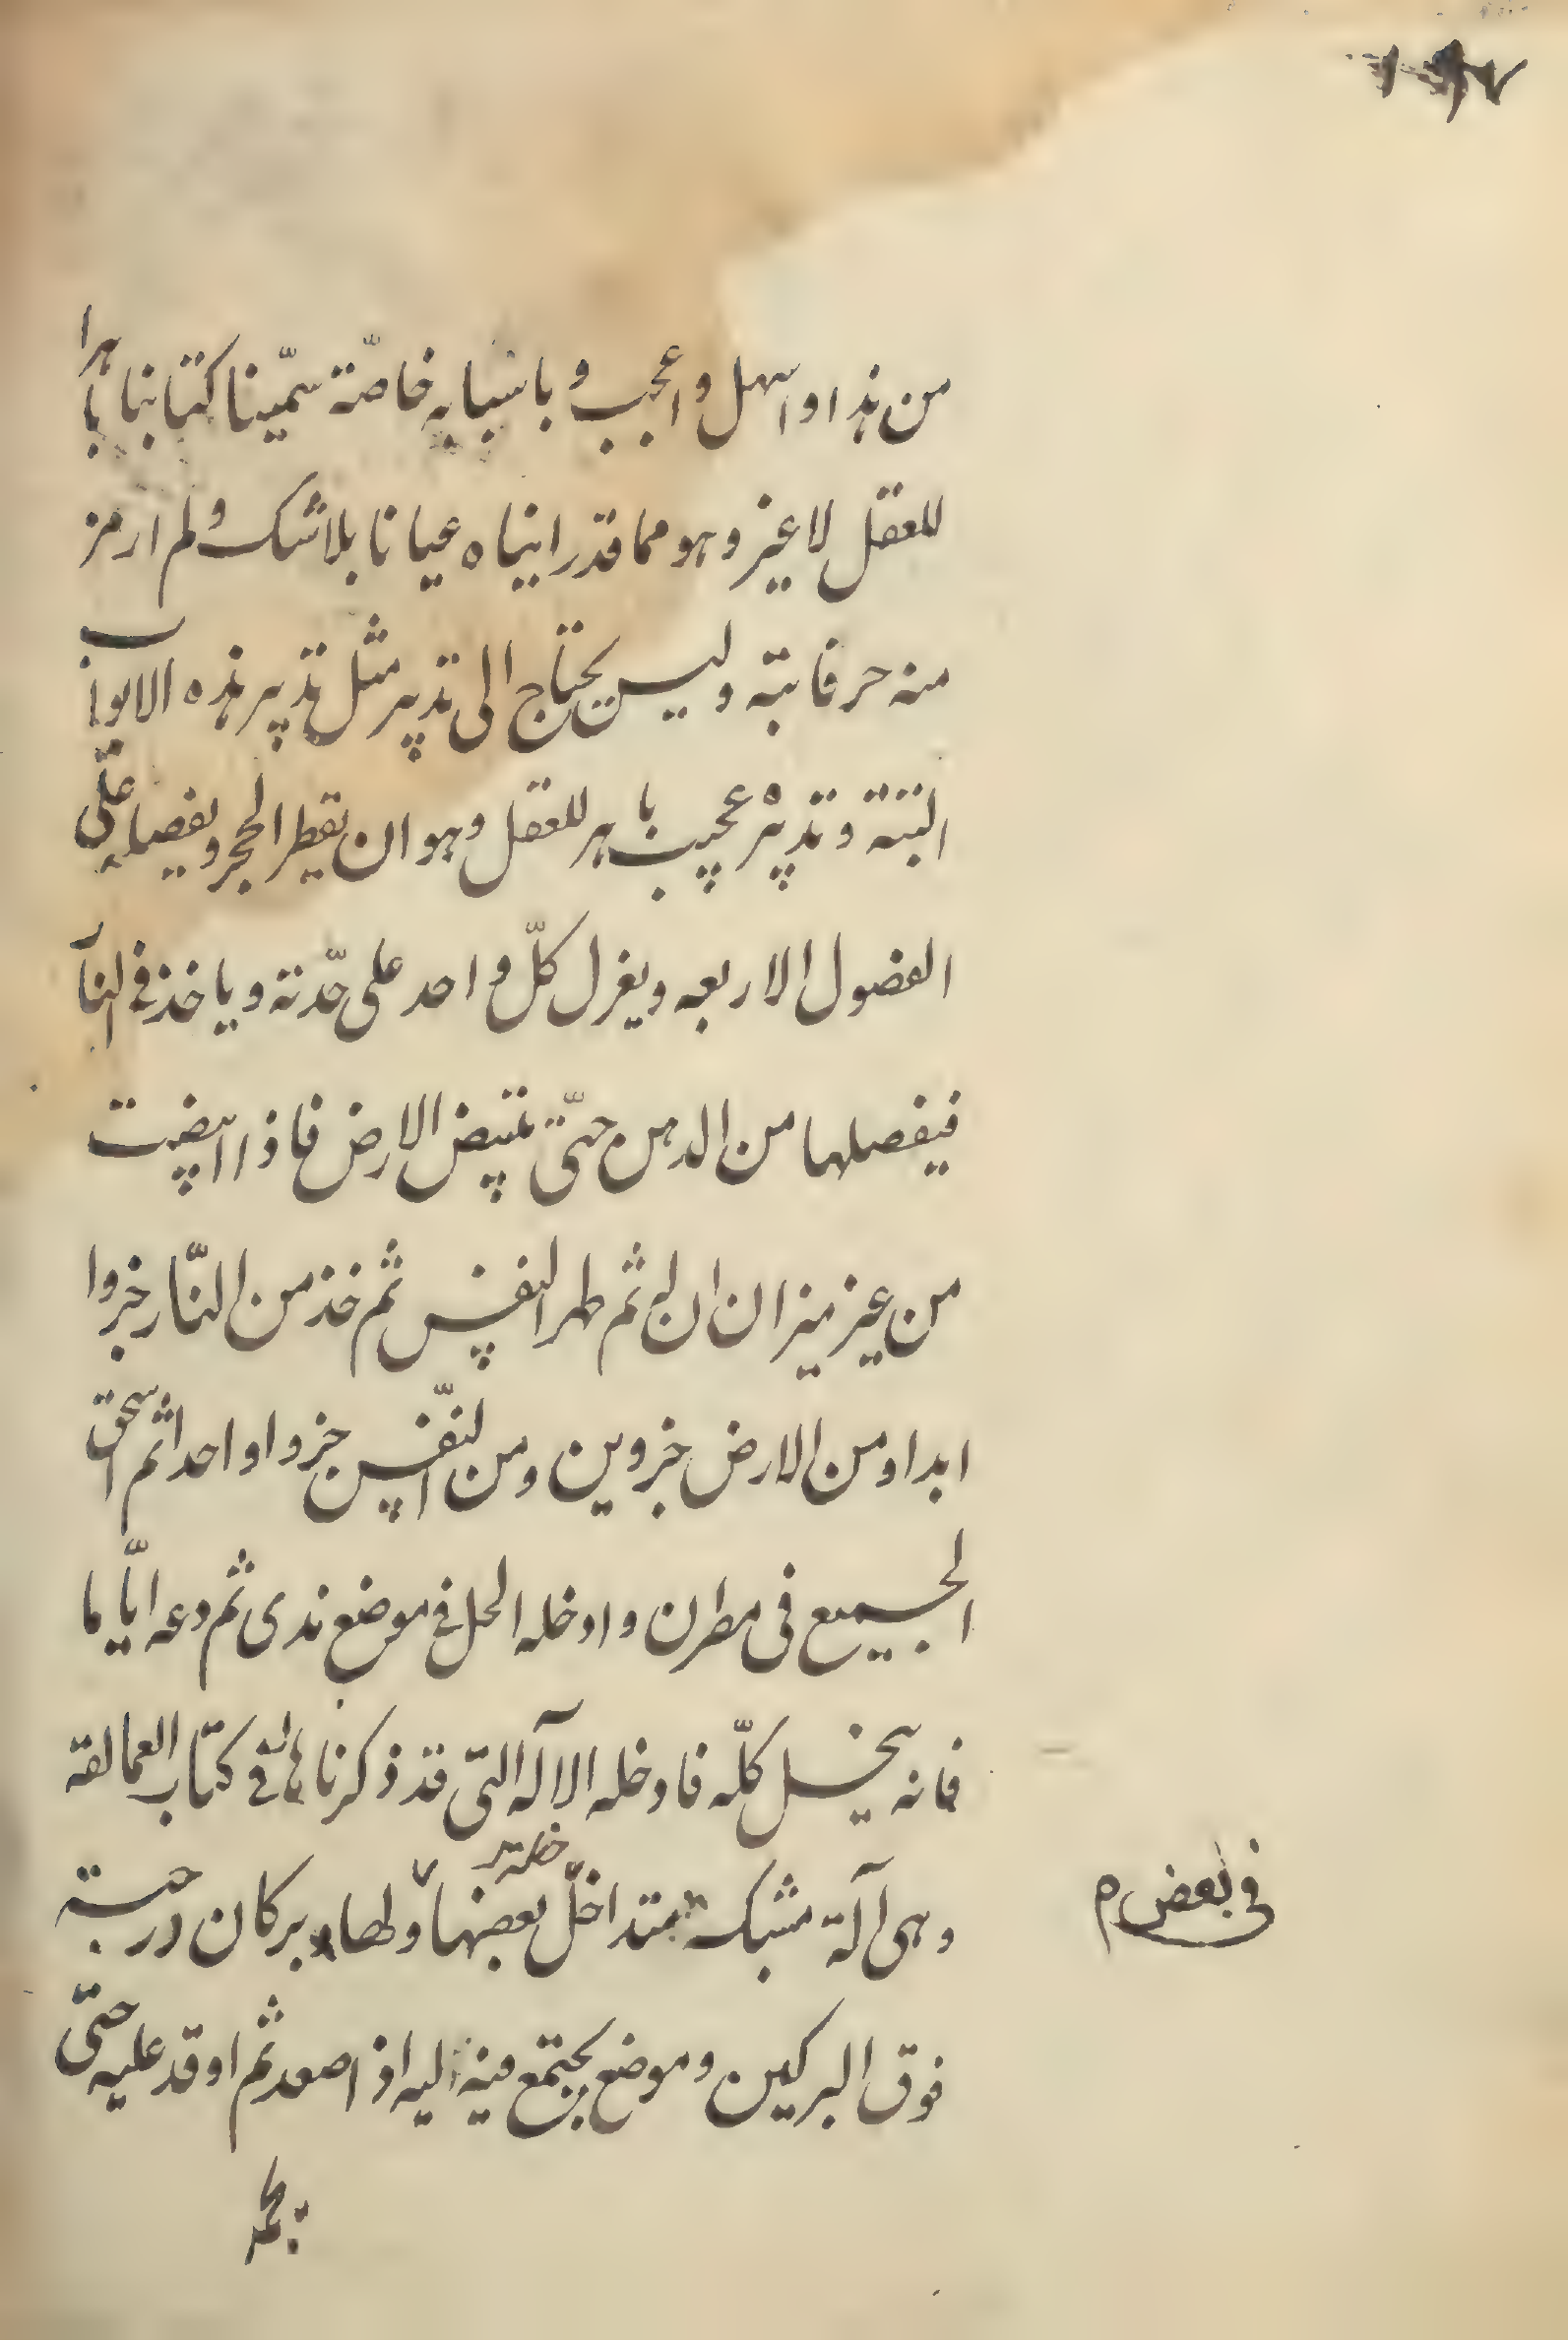 من هذا واسهل واعجب وباسبابه خاصّة سمّينا كتابنا باهرا
للعقل لا غير وهو مما قد رايناه عيانا بلا شك ولم ارمز
منه حرفا بتة وليس يحتاج الى تدبير مثل تدبير هذه الابواب
البتة وتدبيره عجيب باهر للعقل وهو ان يقطر الحجر ويفصل على
الفصول الاربعه ويعزل كلّ واحد على حدّته وياخذ في النار
فيفصلها من الدهن حتّى تبيض الارض فاذا ابيضت
من غير ميزان ان لـه ثم طهر النفس ثم خذ من النّار جزوا
ابدا ومن الارض جزوين ومن النّفس جزوا واحدا ثم اسحق
الجميع في مطرن وادخله الحل في موضع ندى ثم دعه ايّاما
فانه ينحل كلّه فادخله الآله التى قد ذكرناها في كتاب العمالقة
وهى آلة مشبكة متداخل بعضها ولها بركان درجة
في بعض م
فوق البركين وموضع يجتمع فيه اليه اذا صعد ثم اوقد عليه حتّى